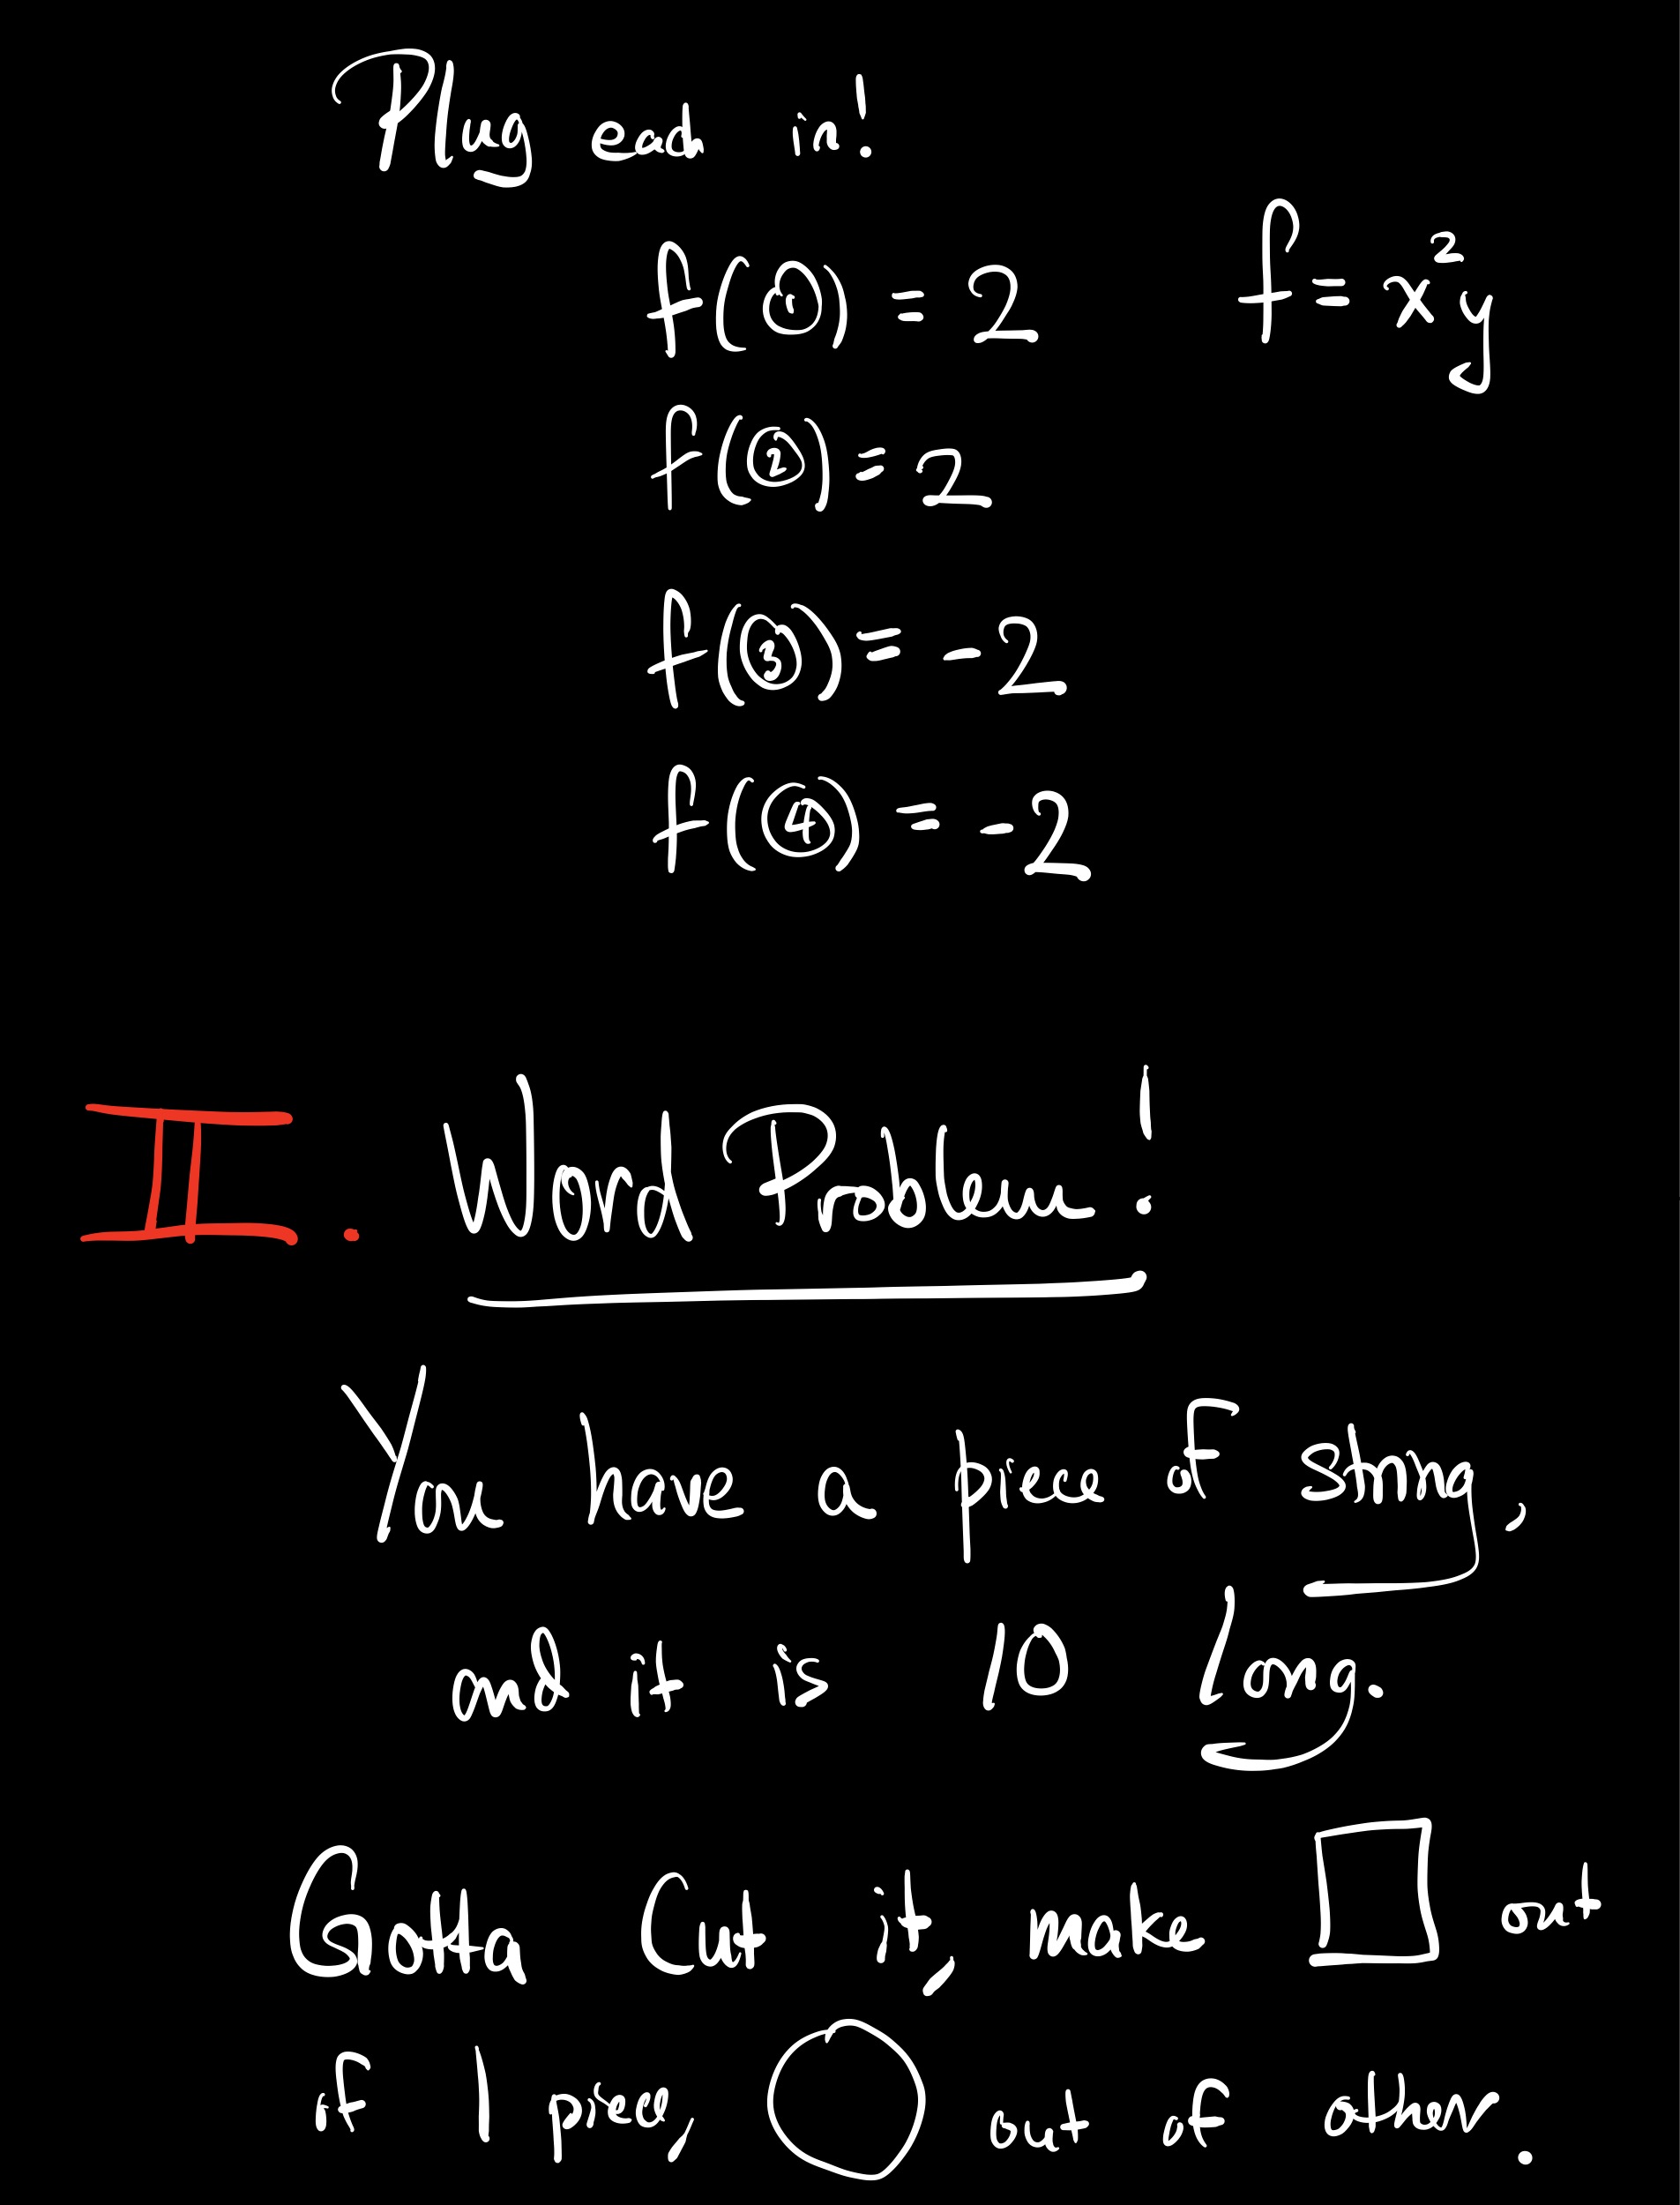 Plug each in!
f(①) = 2 f = x²y
f(②) = 2
f(③) = -2
f(④) = -2
II. Word Problem!
You have a piece of string,
and it is 10 long.
Gotta Cut it, make □ out
of 1 piece, ○ out of other.